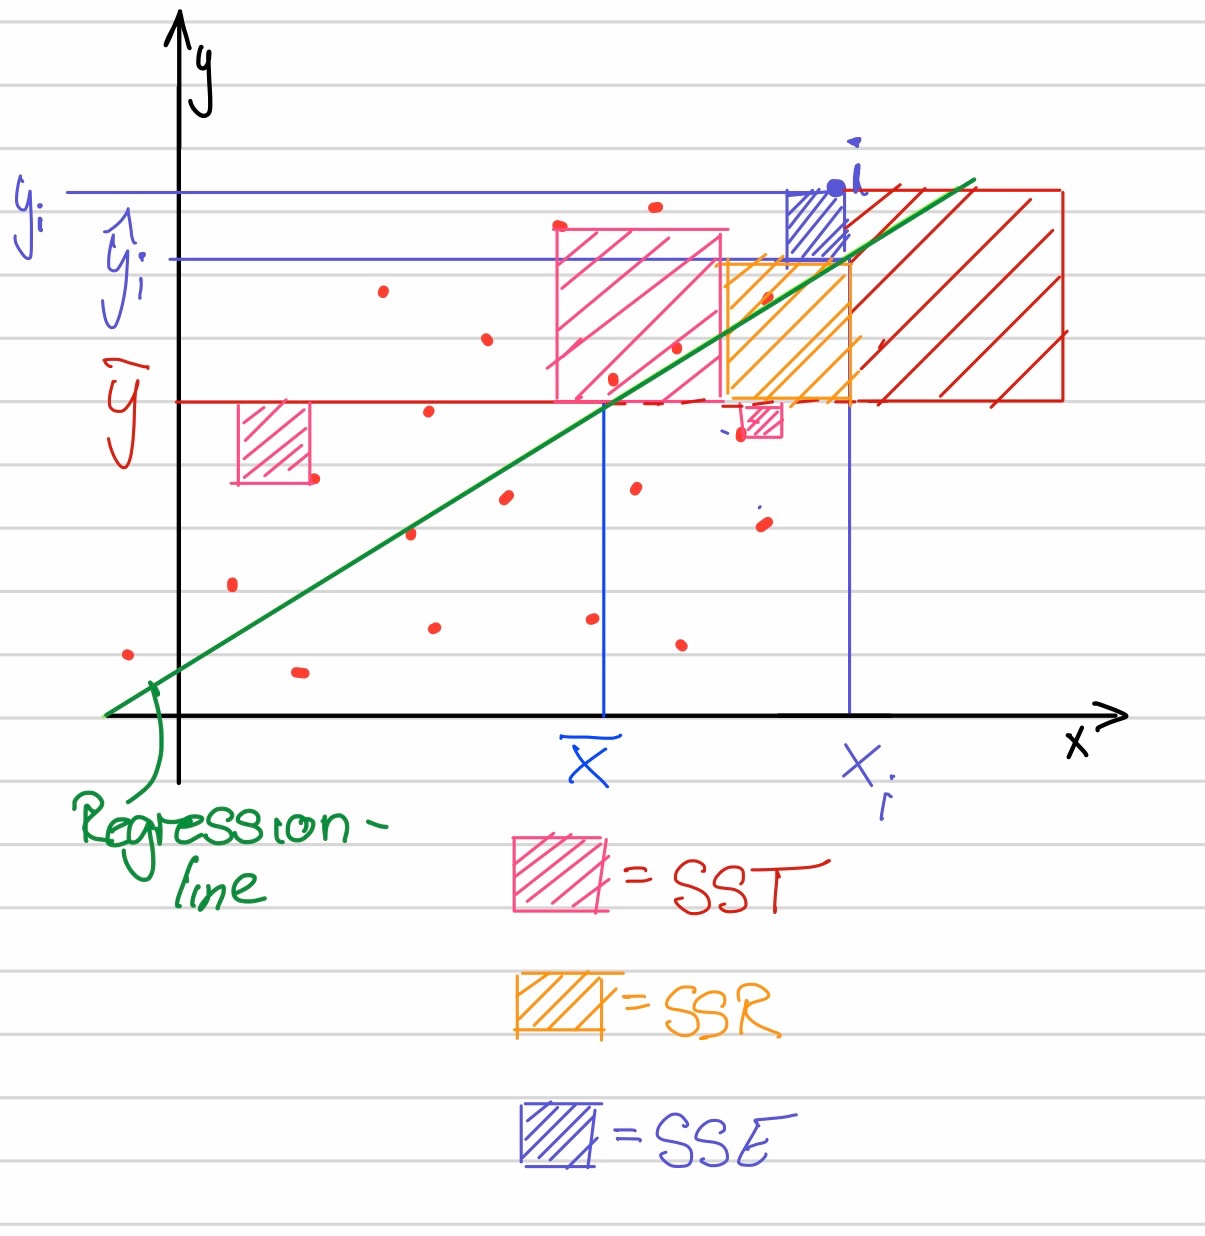 y
i
yᵢ
ŷᵢ
ȳ
x̄
xᵢ
x
Regression-
line
= SST
= SSR
= SSE